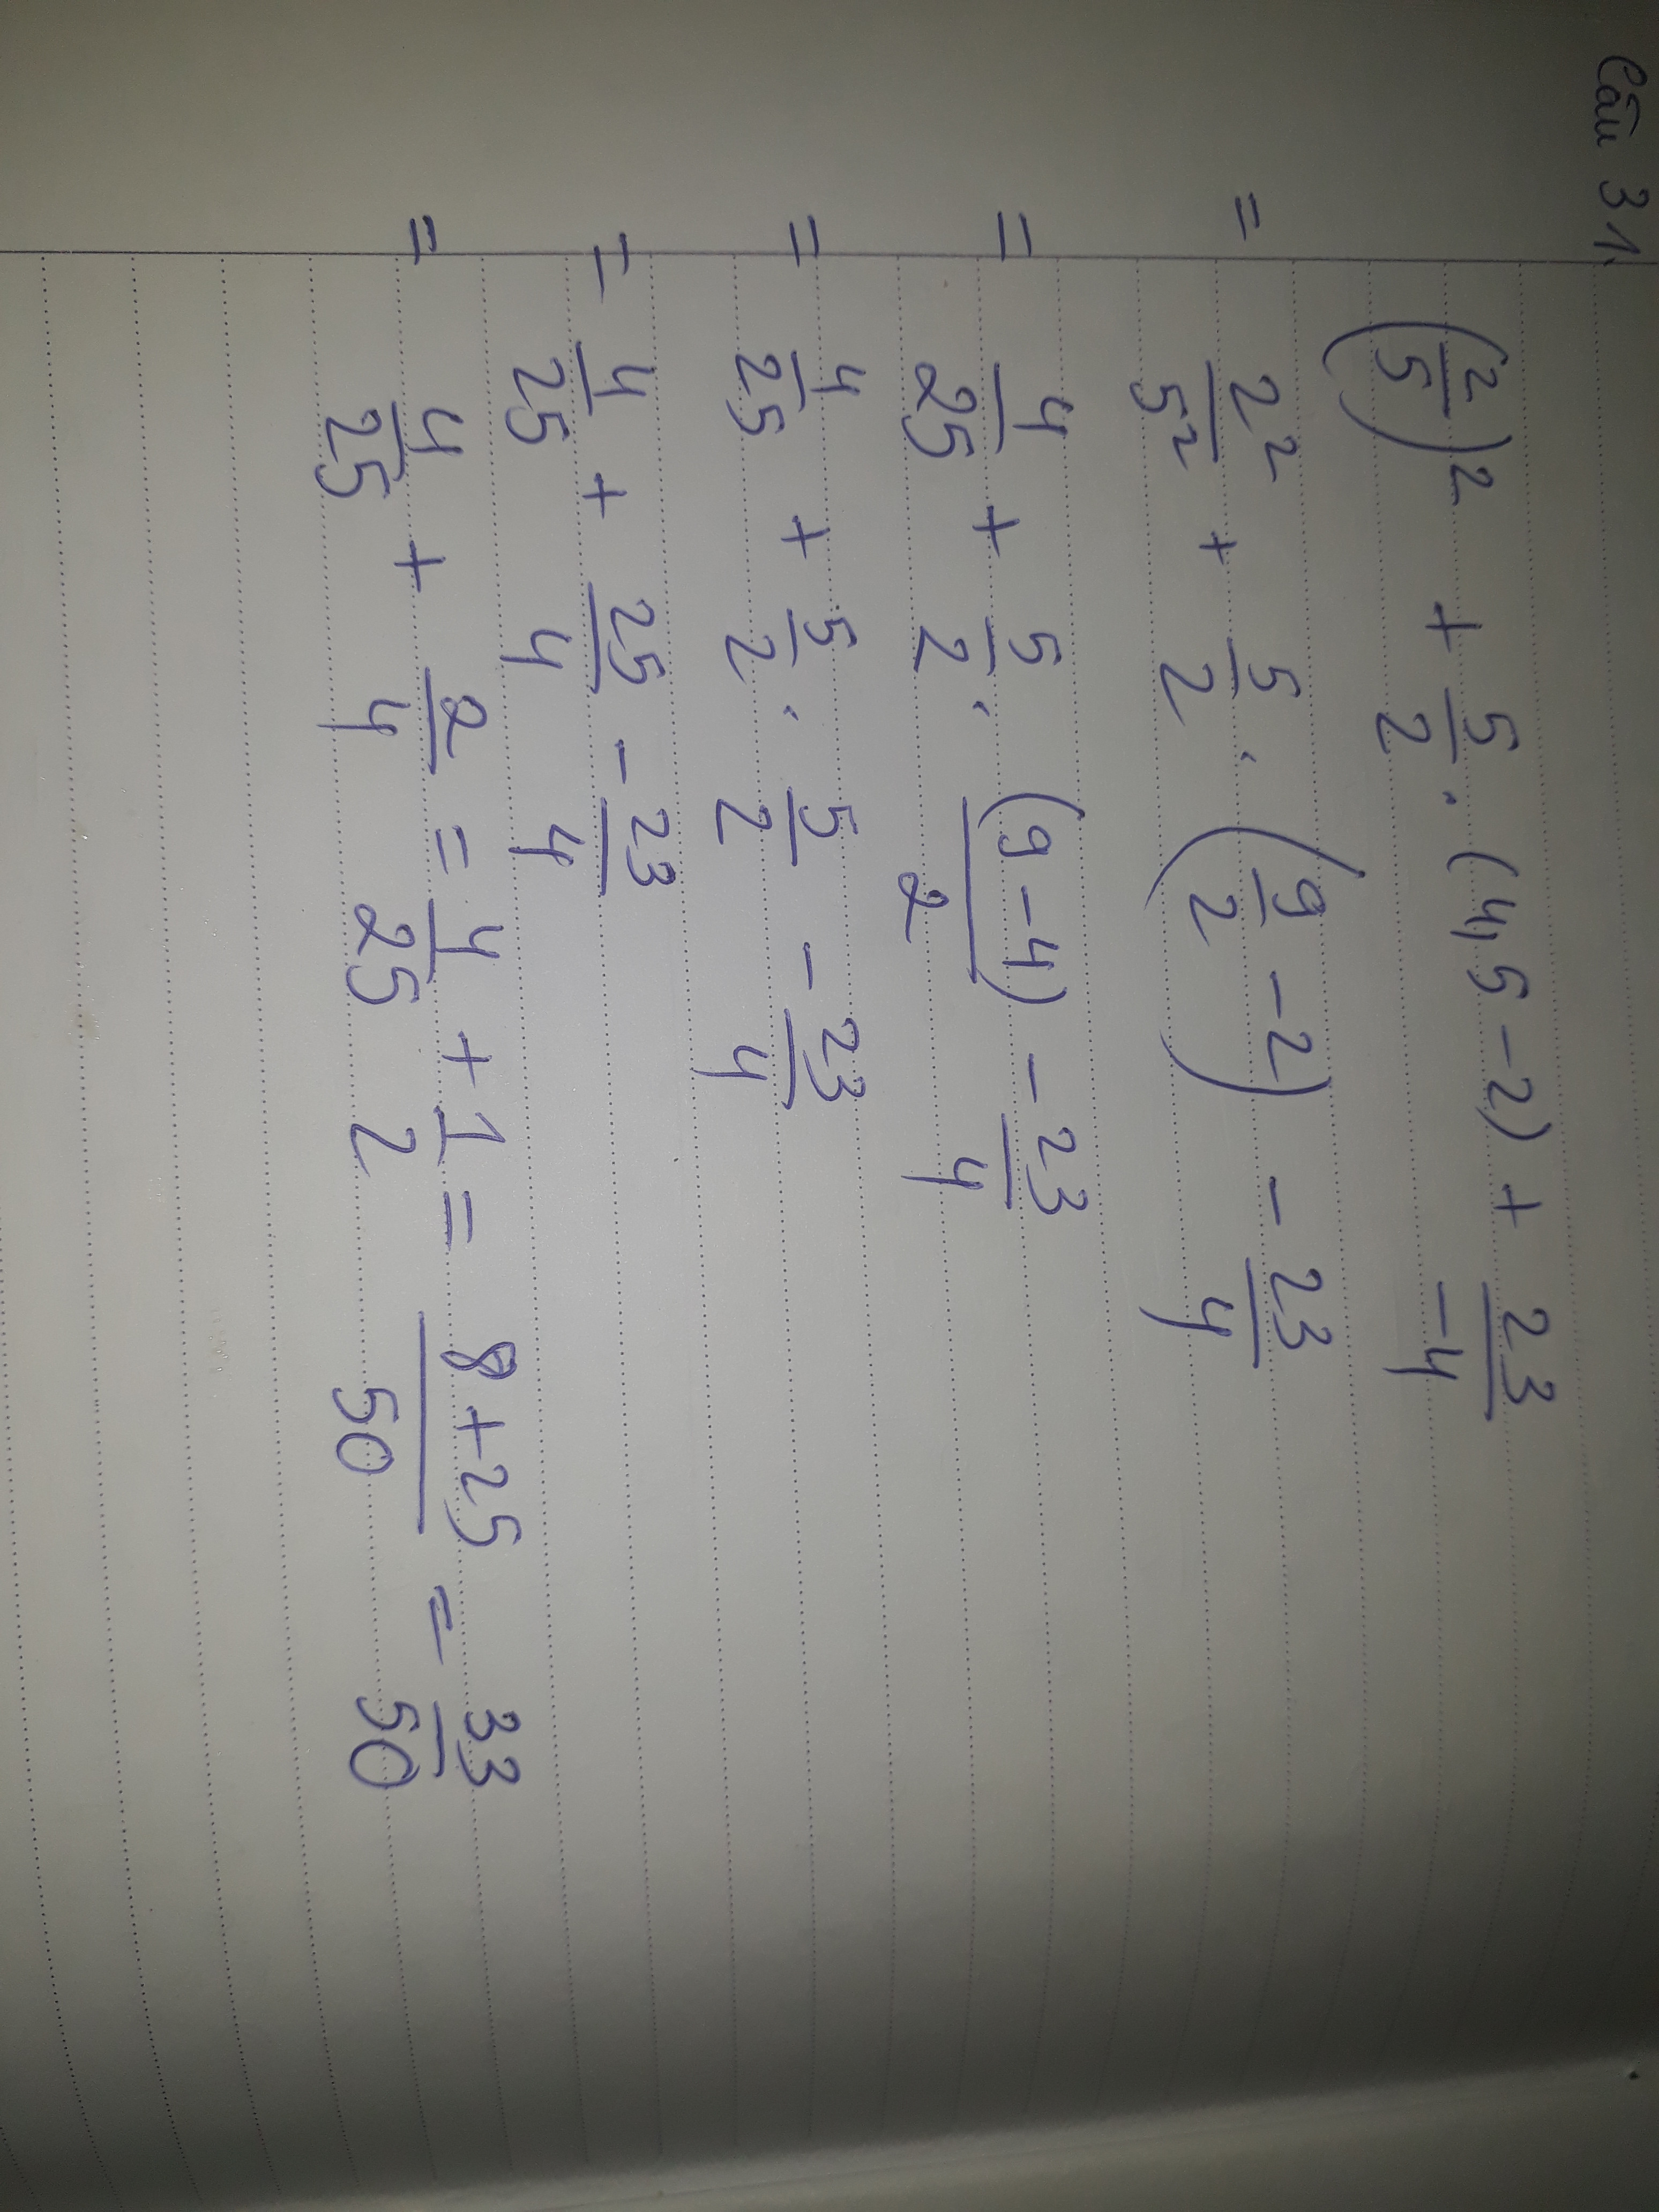 Câu 31
(2/5)² + 5/2 . (4,5 - 2) + 23/-4
= 2²/5² + 5/2 . (9/2 - 2) - 23/4
= 4/25 + 5/2 . (9 - 4)/2 - 23/4
= 4/25 + 5/2 . 5/2 - 23/4
= 4/25 + 25/4 - 23/4
= 4/25 + 2/4 = 4/25 + 1/2 = 8 + 25/50 = 33/50